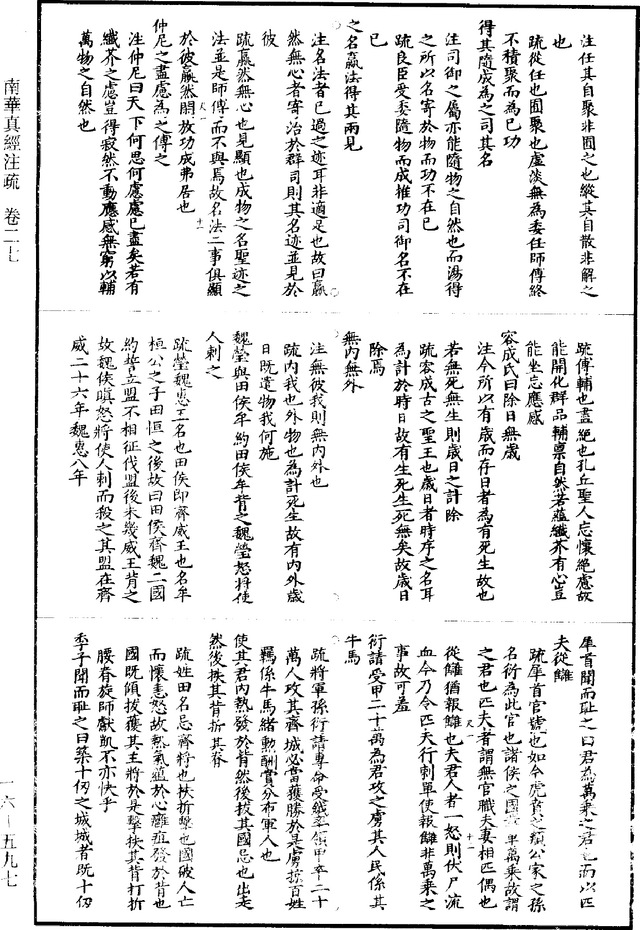 南華真經注疏　卷二七
一六-五九七
注任其自聚非囿之也縱其自散非解之
也
疏從任也囿聚也虛淡無為委任師傅終
不積聚而為已功
得其隨成為之司其名
注司御之屬亦能隨物之自然也而湯得
之所以名寄於物而功不在已
疏良臣受委隨物而成推功司御名不在
已
之名嬴法得其兩見
注名法者已過之迹耳非適足也故曰嬴
然無心者寄治於群司則其名迹並見於
彼
疏嬴然無心也見顯也成物之名聖迹之
法並是師傅而不與焉故名法二事俱顯
於彼嬴然閑放功成弗居也
仲尼之盡慮為之傅之
注仲尼曰天下何思何慮慮已盡矣若有
纖芥之慮豈得寂然不動應感無窮以輔
萬物之自然也
疏傅輔也盡絕也孔丘聖人忘懷絕慮故
能開化群品輔稟自然若蘊纖芥有心豈
能坐忘應感
容成氏曰除日無歲
注今所以有歲而存日者為有死生故也
若無死無生則歲日之計除
疏容成古之聖王也歲日者時序之名耳
為計於時日故有生死生死無矣故歲日
除焉
無內無外
注無彼我則無內外也
疏內我也外物也為計死生故有內外歲
日既遣物我何施
魏瑩與田侯牟約田侯牟背之魏瑩怒將使
人刺之
疏瑩魏惠王名也田侯即齊威王也名牟
桓公之子田恒之後故曰田侯齊魏二國
約誓立盟不相征伐盟後未幾威王背之
故魏侯嗔怒將使人刺而殺之其盟在齊
威二十六年魏惠八年
犀首聞而恥之曰君為萬乘之君也而以匹
夫從讎
疏犀首官號也如今虎賁之類公家之孫
名衍為此官也諸侯之國革車萬乘故謂
之君也匹夫者謂無官職夫妻相匹偶也
從讎猶報讎也夫君人者一怒則伏尸流
血今乃令匹夫行刺單使報讎非萬乘之
事故可羞
衍請受甲二十萬為君攻之虜其人民係其
牛馬
疏將軍孫衍請專命受鉞率領甲卒二十
萬人攻其齊城必當獲勝於是虜掠百姓
羈係牛馬緒勳酬賞分布軍人也
使其君內熱發於背然後拔其國忌也出走
然後抶其背折其脊
疏姓田名忌齊將也抶折擊也國破人亡
而懷恚怒故熱氣蘊於心癰疽發於背也
國既傾拔獲其主將於是擊抶其背打折
腰脊旋師獻凱不亦快乎
季子聞而恥之曰築十仞之城城者既十仞